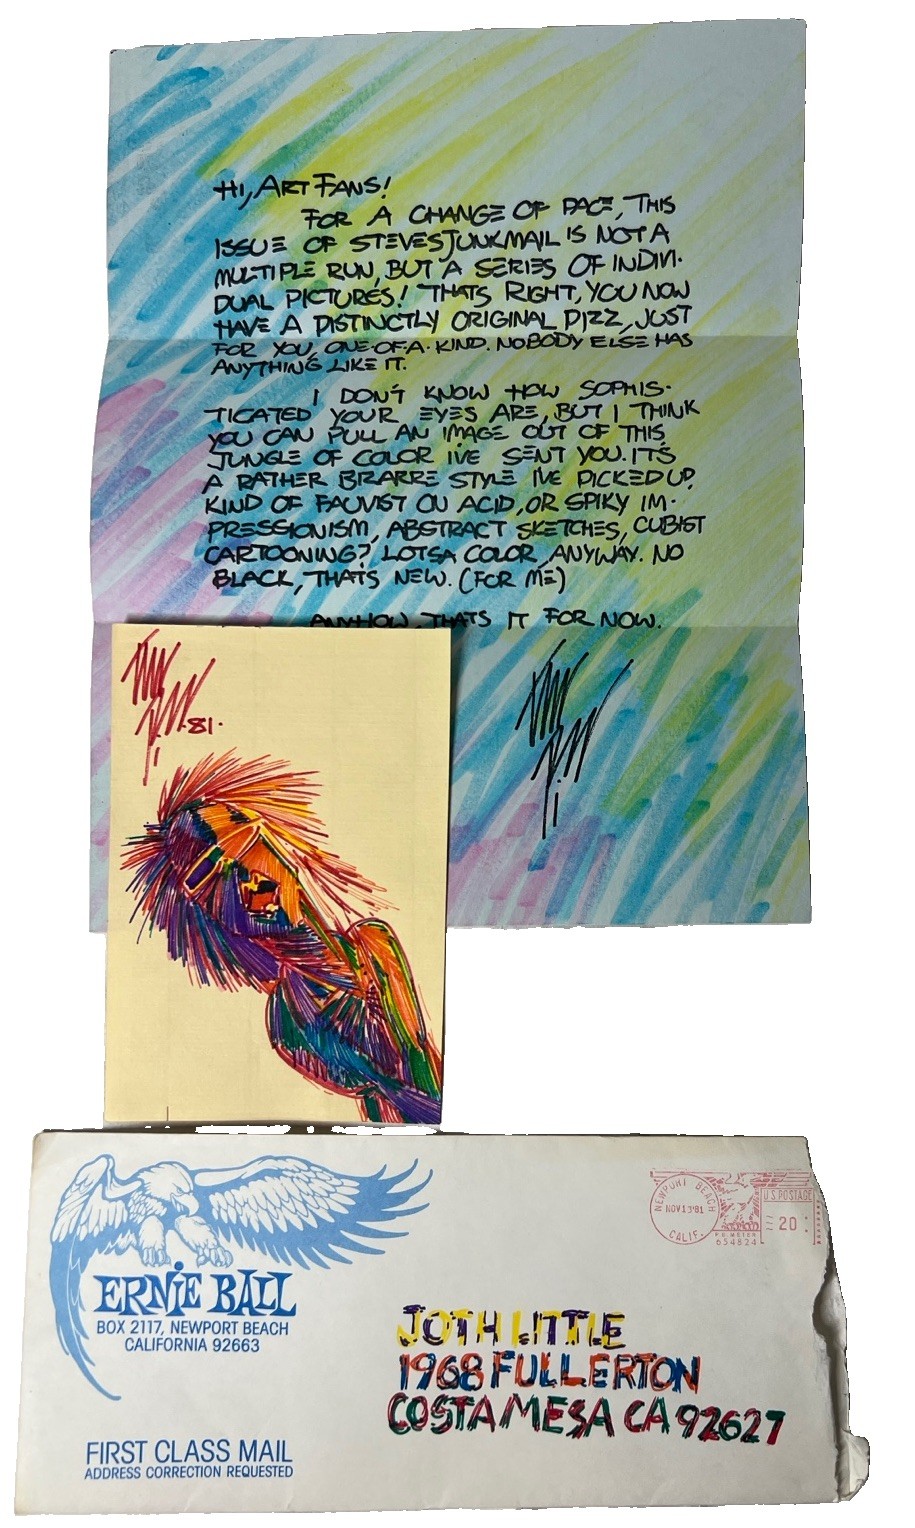 HI, ART FANS!
FOR A CHANGE OF PACE, THIS
ISSUE OF STEVESJUNKMAIL IS NOT A
MULTIPLE RUN, BUT A SERIES OF INDIVI-
DUAL PICTURES! THATS RIGHT, YOU NOW
HAVE A DISTINCTLY ORIGINAL PIZZ, JUST
FOR YOU, ONE-OF-A-KIND. NOBODY ELSE HAS
ANYTHING LIKE IT.
I DON'T KNOW HOW SOPHIS-
TICATED YOUR EYES ARE, BUT I THINK
YOU CAN PULL AN IMAGE OUT OF THIS
JUNGLE OF COLOR I'VE SENT YOU. IT'S
A RATHER BIZARRE STYLE I'VE PICKED UP,
KIND OF FAUVIST OU ACID, OR SPIKY IM-
PRESSIONISM, ABSTRACT SKETCHES, CUBIST
CARTOONING? LOTSA COLOR, ANYWAY. NO
BLACK, THATS NEW. (FOR ME)
ANYHOW, THATS IT FOR NOW.
81.
ERNIE BALL
BOX 2117, NEWPORT BEACH
CALIFORNIA 92663
FIRST CLASS MAIL
ADDRESS CORRECTION REQUESTED
NEWPORT BEACH
NOV 13'81
CALIF.
P.B. METER
654824
U.S. POSTAGE
20
JOTH LITTLE
1968 FULLERTON
COSTA MESA CA 92627